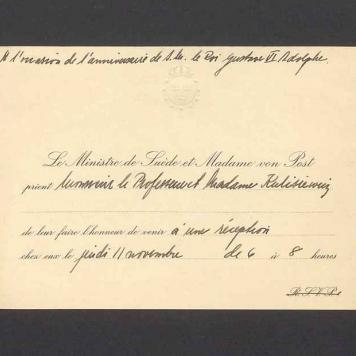 A l'occasion de l'anniversaire de S.M. le Roi Gustave VI Adolphe.
Le Ministre de Suède et Madame von Post
prient Monsieur le Professeur et Madame Kulisiewicz
de leur faire l'honneur de venir à une réception
chez eux le jeudi 11 novembre de 6 à 8 heures
R.S.V.P.